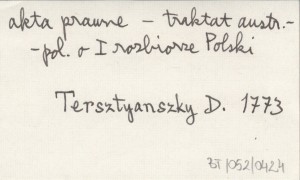 akta prawne – traktat austr.-
-pol. o I rozbiorze Polski
Tersztyanszky D. 1773
BT/052/0424